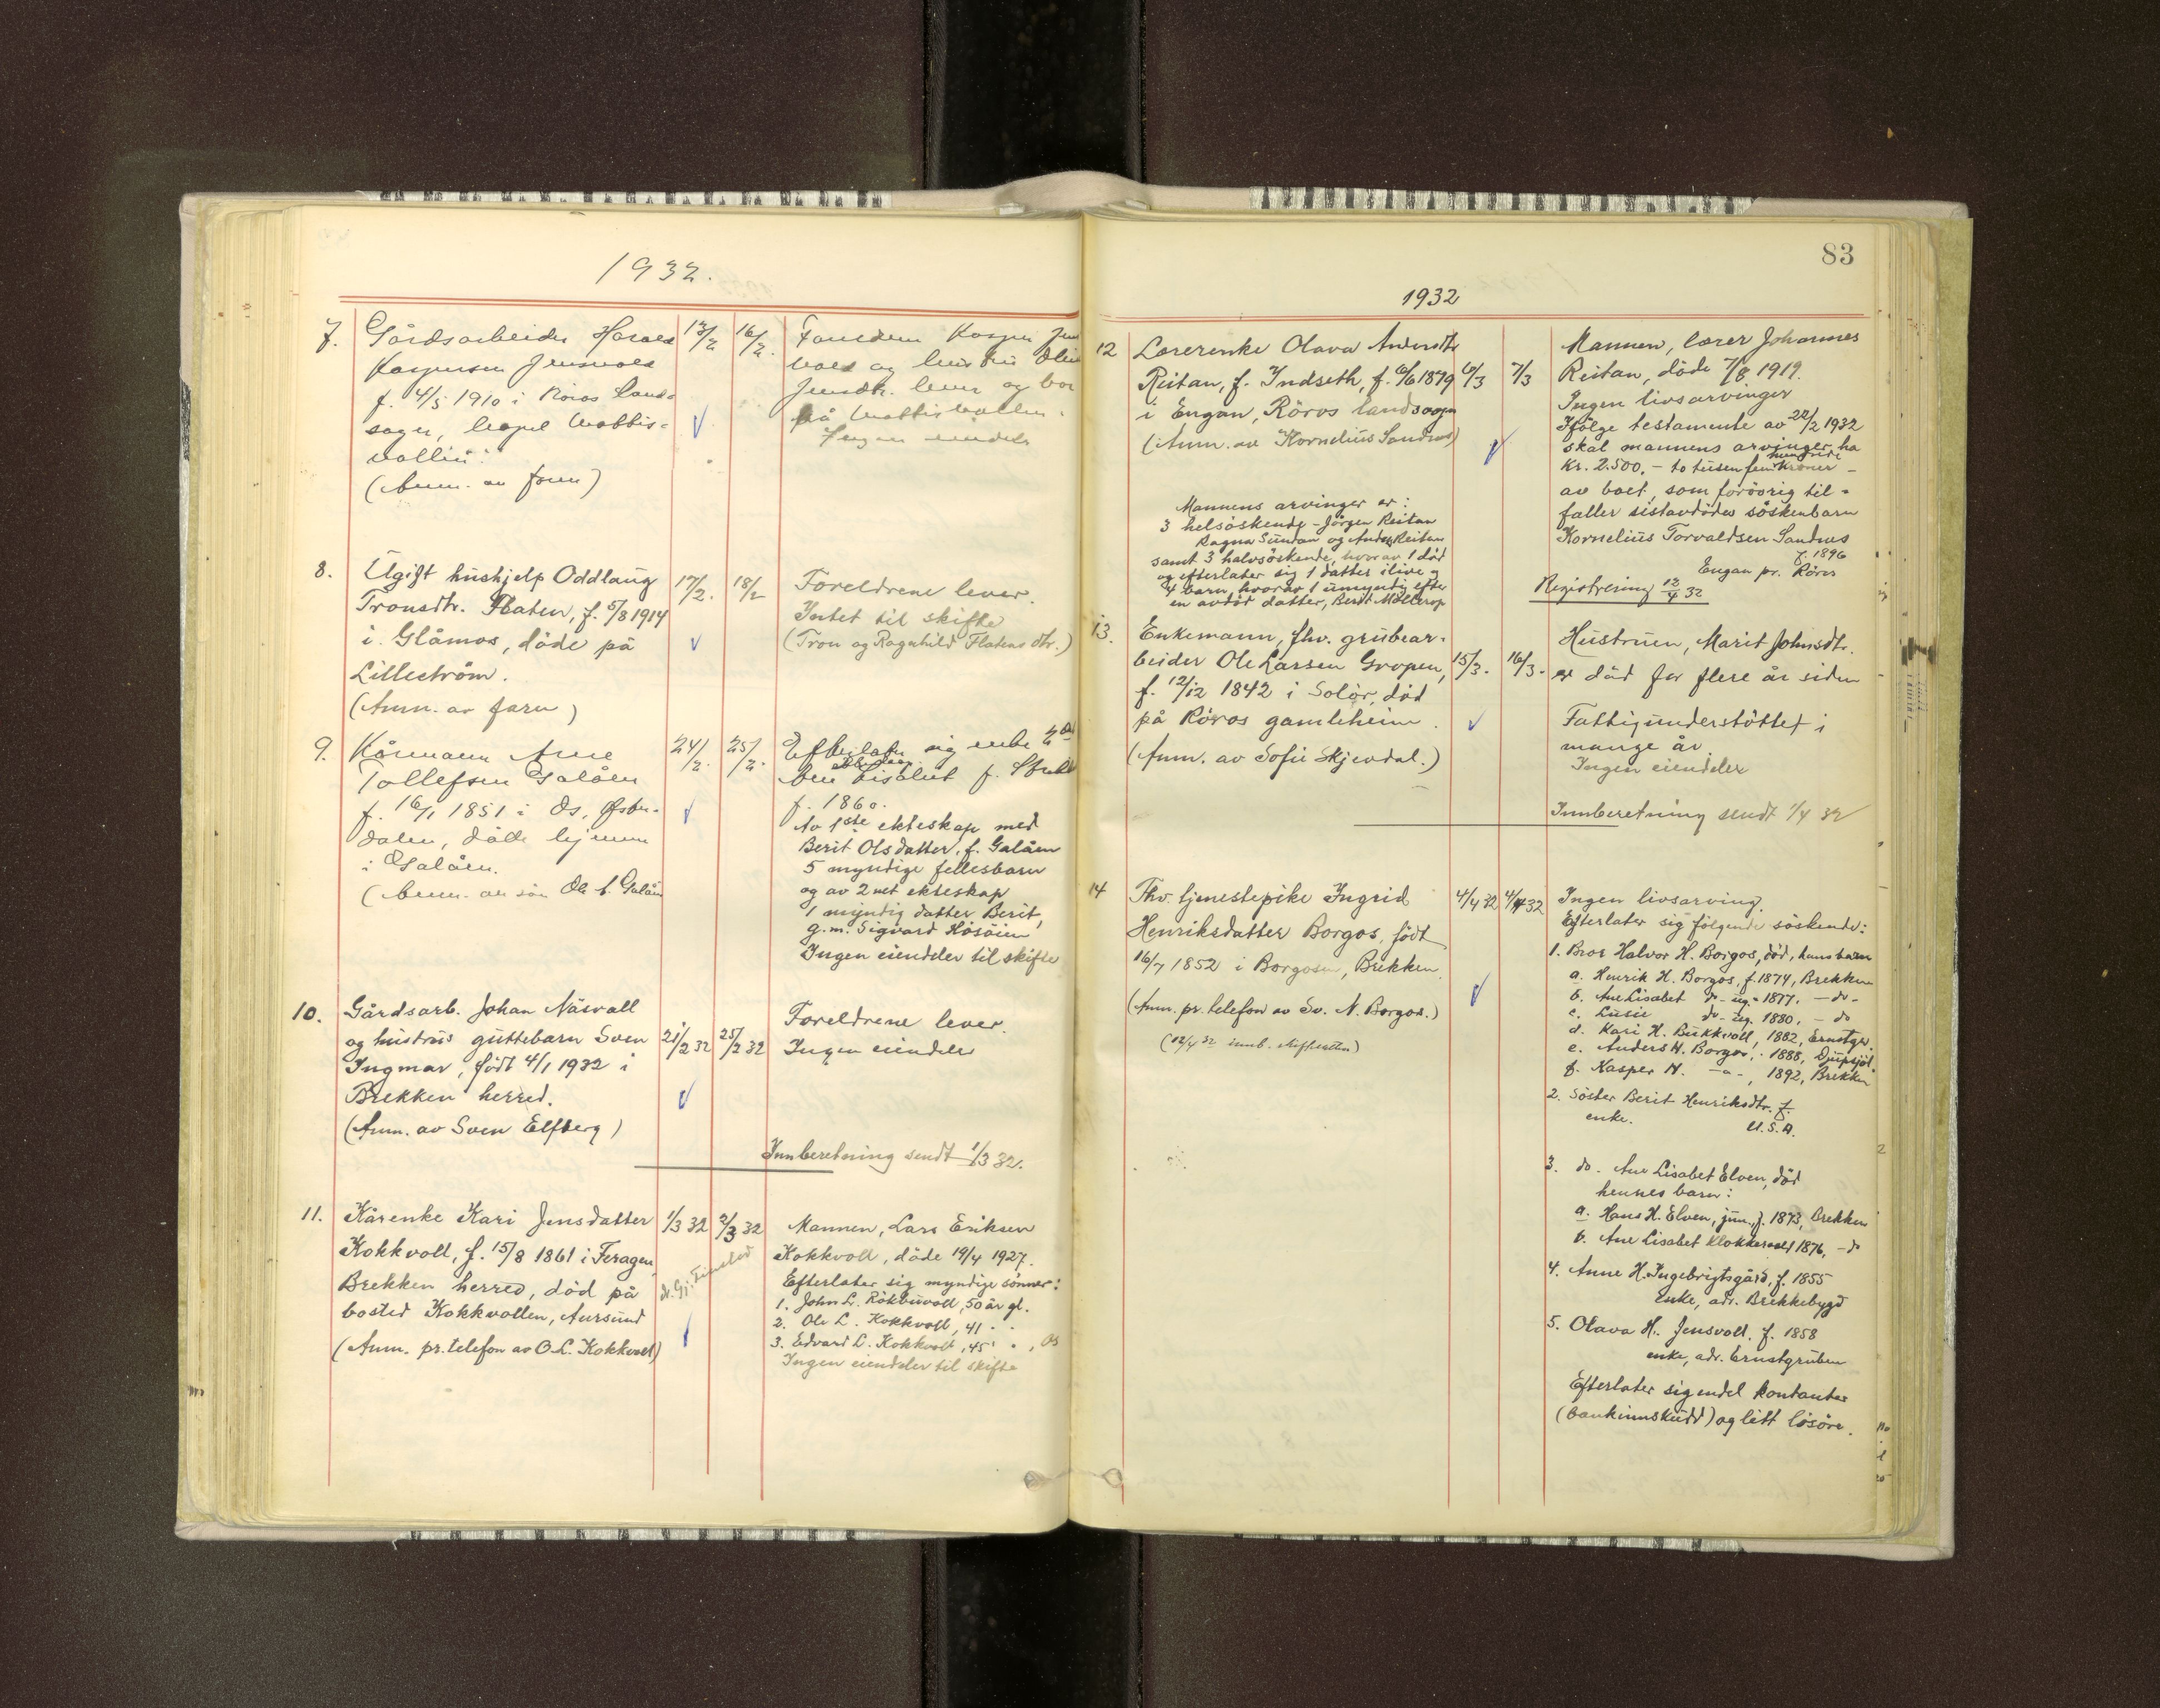 1932.
7. Gårdsarbeider Harald 13/2 16/2.
Kaspersen Jensvold
f. 4/5 1910 i Röros Land=
sogn,
(Anm. av faren)
Kasper
og
Jensdtr. lever og bor
på
Ingen eiendele
8. Ugift hushjelp Oddlaug 17/2. 18/2
Tronsdtr. Flaten, f. 5/8 1914
i Glåmos, döde på
Lilleström.
(Anm. av faren)
Foreldrene lever.
Intet til skifte
(Tron og Ragnhild Flatens dtr.)
9. Kårmann Arne 24/2. 25/2.
Tollefsen Galåen
f. 16/1 1851 i Os, Øster-
dalen, döde hjemme
i Galåen.
(Anm. av sön Ole A. Galåen
Efterlater sig enke
Lisabet f.
f. 1860.
Av 1ste ekteskap med
Berit Olsdatter, f. Galåen
5 myndige fellesbarn
og av 2net ekteskap
1 myndig datter Berit,
g.m. Sigvard Hösöien
Ingen eiendeler til skifte
10. Gårdsarb. Johan Näsvall
og hustrus guttebarn Sven 21/2 32 25/2 32
Ingmar, födt 4/1 1932 i
Brekken herred.
(Anm. av Sven Elfberg)
Foreldrene lever.
Ingen eiendeler
Innberetning sendt 1/3 32.
11. Kårenke Kari Jensdatter 1/3 32 2/3 32
Kokkvoll, f. 15/8 1861 i Feragen,
Brekken herred, död på
bosted Kokkvollen, Aursund
(Anm. pr. telefon av O.L. Kokkvoll)
Mannen, Lars Eriksen
Kokkvoll, döde 19/4 1927.
Efterlater sig myndige sönner:
1. John L. Rökbuvoll, 50 år gl.
2. Ole L. Kokkvoll, 41 - -
3. Edvard L. Kokkvoll, 45 - -, Os
Ingen eiendeler til skifte
83
1932
12 Lærerenke Olava Andersdtr
Reitan, f. Indseth, f. 6/6 1879 6/3 7/3
i Engan, Röros landsogn
(Anm. av Kornelius Sandnes)
Mannens arvinger er:
3 helsöskende - Jörgen Reitan
Ragna Sundan og Anders Reitan
samt 3 halvsöskende, hvorav 1 död
og efterlater sig 1 datter ilive og
4 barn, hvorav 1 umyndig efter
en avdöd datter, Berit Möllerop
Mannen, lærer Johannes
Reitan, döde 7/8 1919.
Ingen livsarvinger
Ifölge testamente av 22/2 1932
skal mannens arvinger ha
Kr. 2.500,- to tusen fem hundrede kroner -
av boet, som forövrig til-
faller sistavdödes söskenbarn
Kornelius Torvaldsen Sandnes
f. 1896
Engan pr. Röros
Registrering 12/4 32
13. Enkemann, fhv. grubear-
beider Ole Larsen Gropen, 15/3. 16/3.
f. 12/12 1842 i Solör, död
på Röros gamleheim.
(Anm. av Sofie Skjevdal.)
Hustruen, Marit Johnsdtr.
er död for flere år siden
Fattigunderstöttet i
mange år.
Ingen eiendeler
Innberetning sendt 1/4 32
14 Fhv. tjenestepike Ingrid 4/4 32 4/4 32
Henriksdatter Borgos, födt
16/7 1852 i Borgosen, Brekken.
(Anm. pr. telefon av Sv. N. Borgos.)
(12/4 32 innb. skifteretten)
Ingen livsarving.
Efterlater sig fölgende söskende:
1. Bror Halvor H. Borgos, död, hans barn
a. Henrik H. Borgos, f. 1874, Brekken
b. Ane Lisabet do - ug. - 1877, - do -
c. Lusie do - ug. 1880, - do
d. Kari H. Bukkvoll, 1882, Ernstgr.
e. Anders H. Borgos, - 1888, Djupsjöl.
f. Kasper H. - " - , 1892, Brekken
2. Söster Berit Henriksdtr. f.
enke. U.S.A.
3. do - Ane Lisabet Elven, död
hennes barn:
a. Hans H. Elven, jun., f. 1873, Brekken
b. Ane Lisabet Klokkervoll 1876, - do
4. Anne H. Ingebrigtsgård, f. 1855
Enke, adr. Brekkebygd
5. Olava H. Jensvoll, f. 1858
enke, adr. Ernstgruben
Efterlater sig endel kontanter
(bankinnskudd) og litt lösöre.